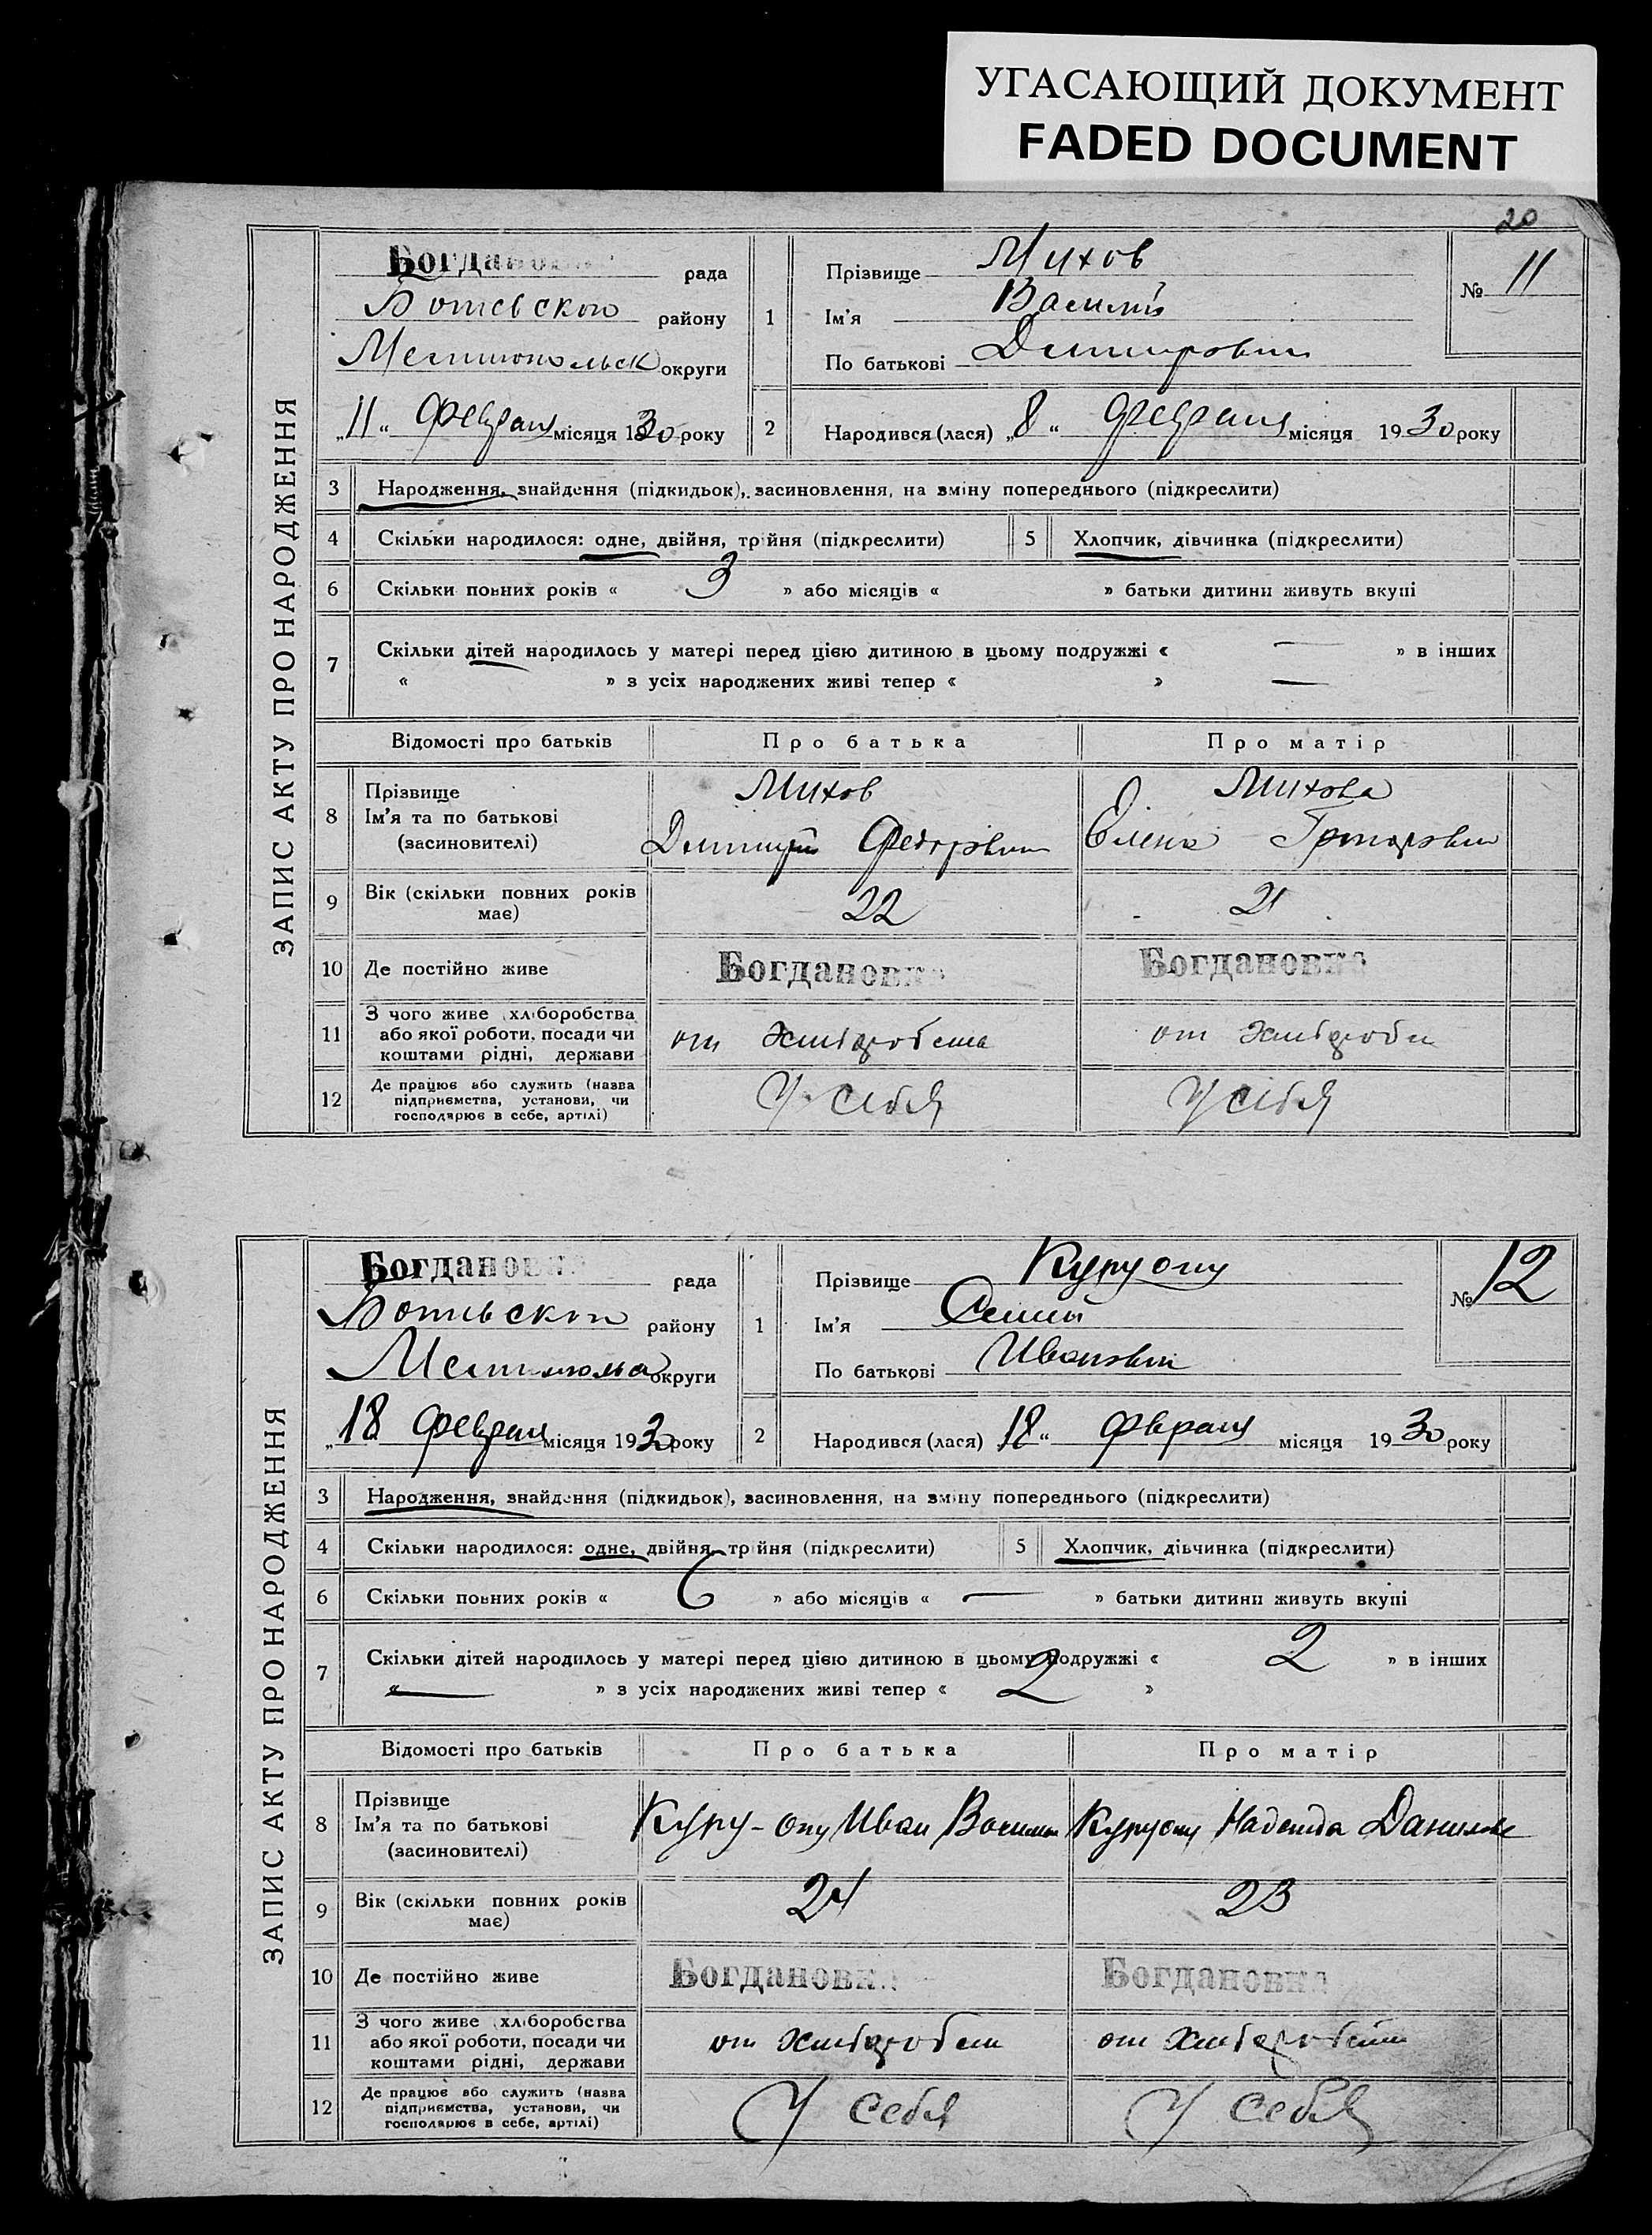 УГАСАЮЩИЙ ДОКУМЕНТ
FADED DOCUMENT
20
ЗАПИС АКТУ ПРО НАРОДЖЕННЯ
Богдановка рада
Ботевского району
Мелитопольск округи
„11“ Февраля місяця 1930 року
1
Прізвище Михов
Ім'я Василий
По батькові Дмитрович
№ 11
2
Народився (лася) „8“ Февраля місяця 1930 року
3 Народження, знайдення (підкидьок), засиновлення, на зміну попереднього (підкреслити)
4 Скільки народилося: одне, двійня, трійня (підкреслити) 5 Хлопчик, дівчинка (підкреслити)
6 Скільки повних років « 3 » або місяців « » батьки дитини живуть вкупі
7 Скільки дітей народилось у матері перед цією дитиною в цьому подружжі « — » в інших
« » з усіх народжених живі тепер « » —
Відомості про батьків Про батька Про матір
8 Прізвище Михов Михова
Ім'я та по батькові
(засиновителі) Дмитрий Федорович Олена Григоровна
9 Вік (скільки повних років має) 22 21
10 Де постійно живе Богдановка Богдановка
11 З чого живе (хліборобства
або якої роботи, посади чи от хлебороб от хлебороб
коштами рідні, держави
12 Де працює або служить (назва
підприємства, установи, чи У себя У себя
господарює в себе, артілі)
ЗАПИС АКТУ ПРО НАРОДЖЕННЯ
Богдановка рада
Ботевского району
округи
„18 Февраля місяця 1930 року
1
Прізвище Куруогу
Ім'я Семен
По батькові Иванович
№ 12
2
Народився (лася) 18“ Февраля місяця 1930 року
3 Народження, знайдення (підкидьок), засиновлення, на зміну попереднього (підкреслити)
4 Скільки народилося: одне, двійня, трійня (підкреслити) 5 Хлопчик, дівчинка (підкреслити)
6 Скільки повних років « 6 » або місяців « — » батьки дитини живуть вкупі
7 Скільки дітей народилось у матері перед цією дитиною в цьому подружжі « 2 » в інших
« — » з усіх народжених живі тепер « 2 »
Відомості про батьків Про батька Про матір
8 Прізвище
Ім'я та по батькові Куру-огу Иван Васильев Куруогу Надежда Данилов
(засиновителі)
9 Вік (скільки повних років має) 24 23
10 Де постійно живе Богдановка Богдановка
11 З чого живе (хліборобства
або якої роботи, посади чи от хлебороб от хлебороб
коштами рідні, держави
12 Де працює або служить (назва
підприємства, установи, чи У себя У себя
господарює в себе, артілі)